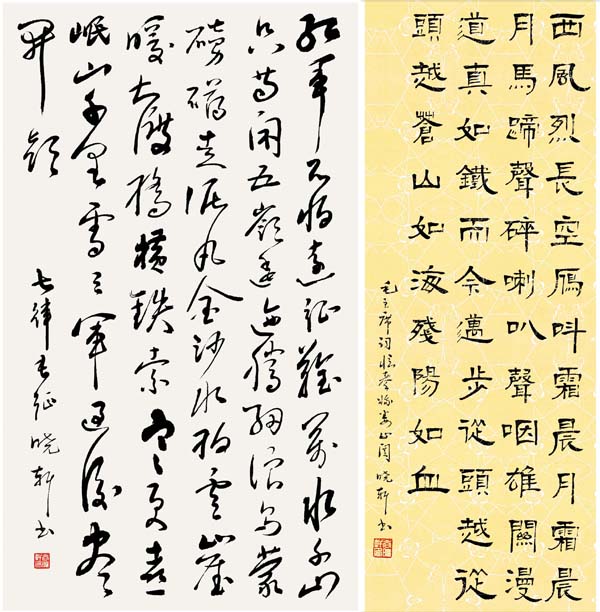 红軍不怕遠征難萬水千山
只等闲五嶺逶迤腾細浪乌蒙
磅礴走泥丸金沙水拍雲崖
暖大渡橋横鉄索寒更喜
岷山千里雪三軍过後尽
开颜
七律长征晓轩书
西風烈長空鴈叫霜晨月霜晨
月馬蹄聲碎喇叭聲咽雄關漫
道真如鐵而今邁步從頭越從
頭越蒼山如海殘陽如血
毛主席词忆秦娥娄山関晓轩书